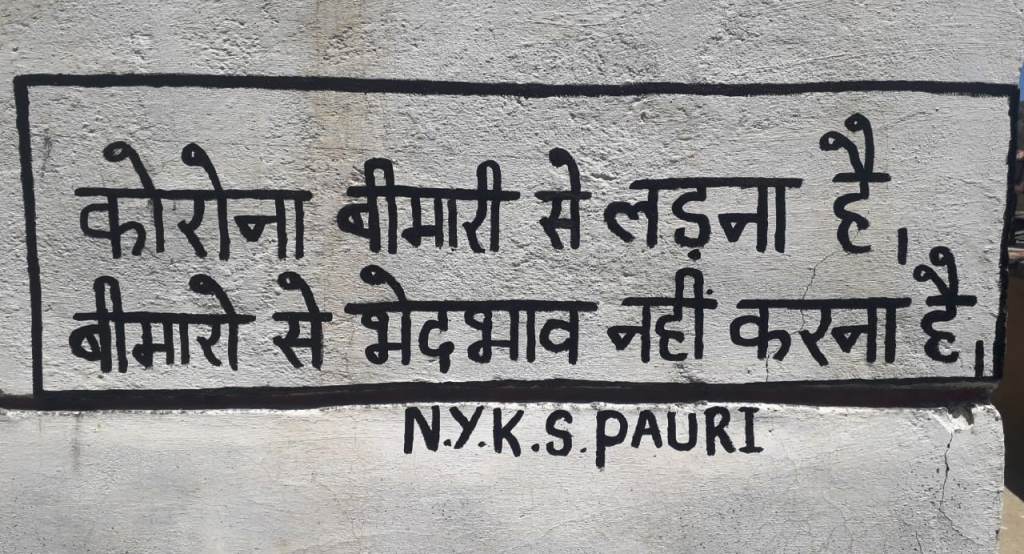 कोरोना बीमारी से लड़ना है,
बीमारो से भेदभाव नहीं करना है,
N.Y.K.S. PAURI